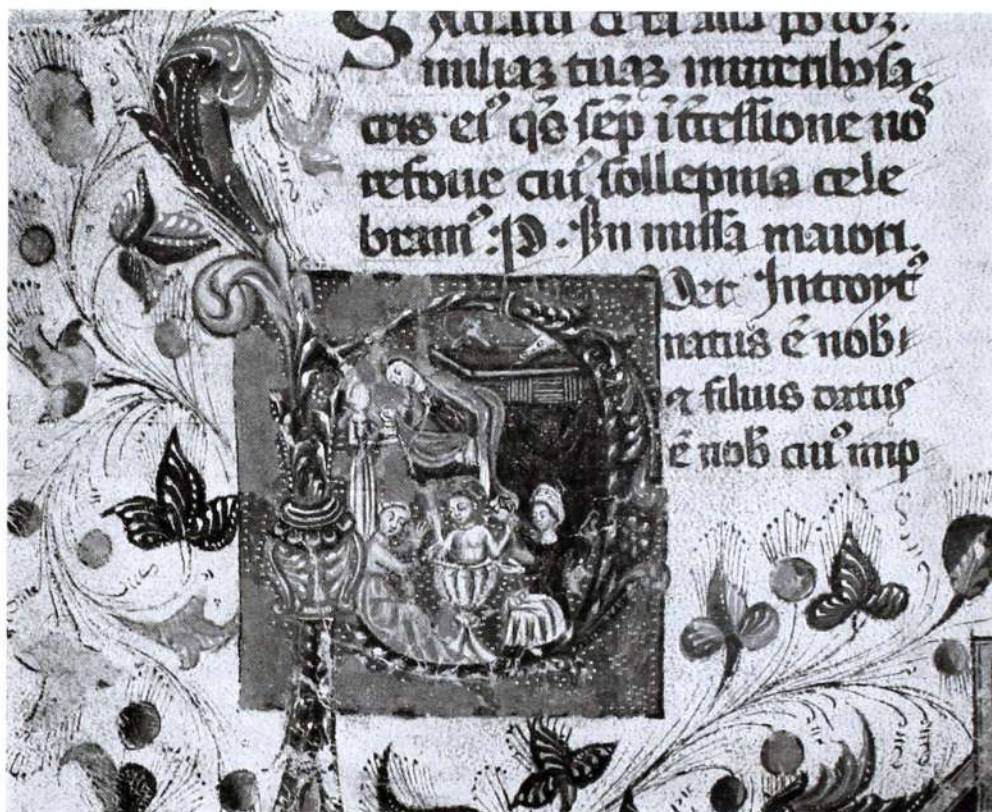 Saciasti
miliaz tuaz muneribȝ sa
cris eiꝰ qs sēp īt̄cessione noˢ
refove cuiꝰ sollepnia cele
bramꝰ : P . In missa maiori .
Introytꝰ
natus ē nob
⁊ filius datus
ē nob cuiꝰ imp